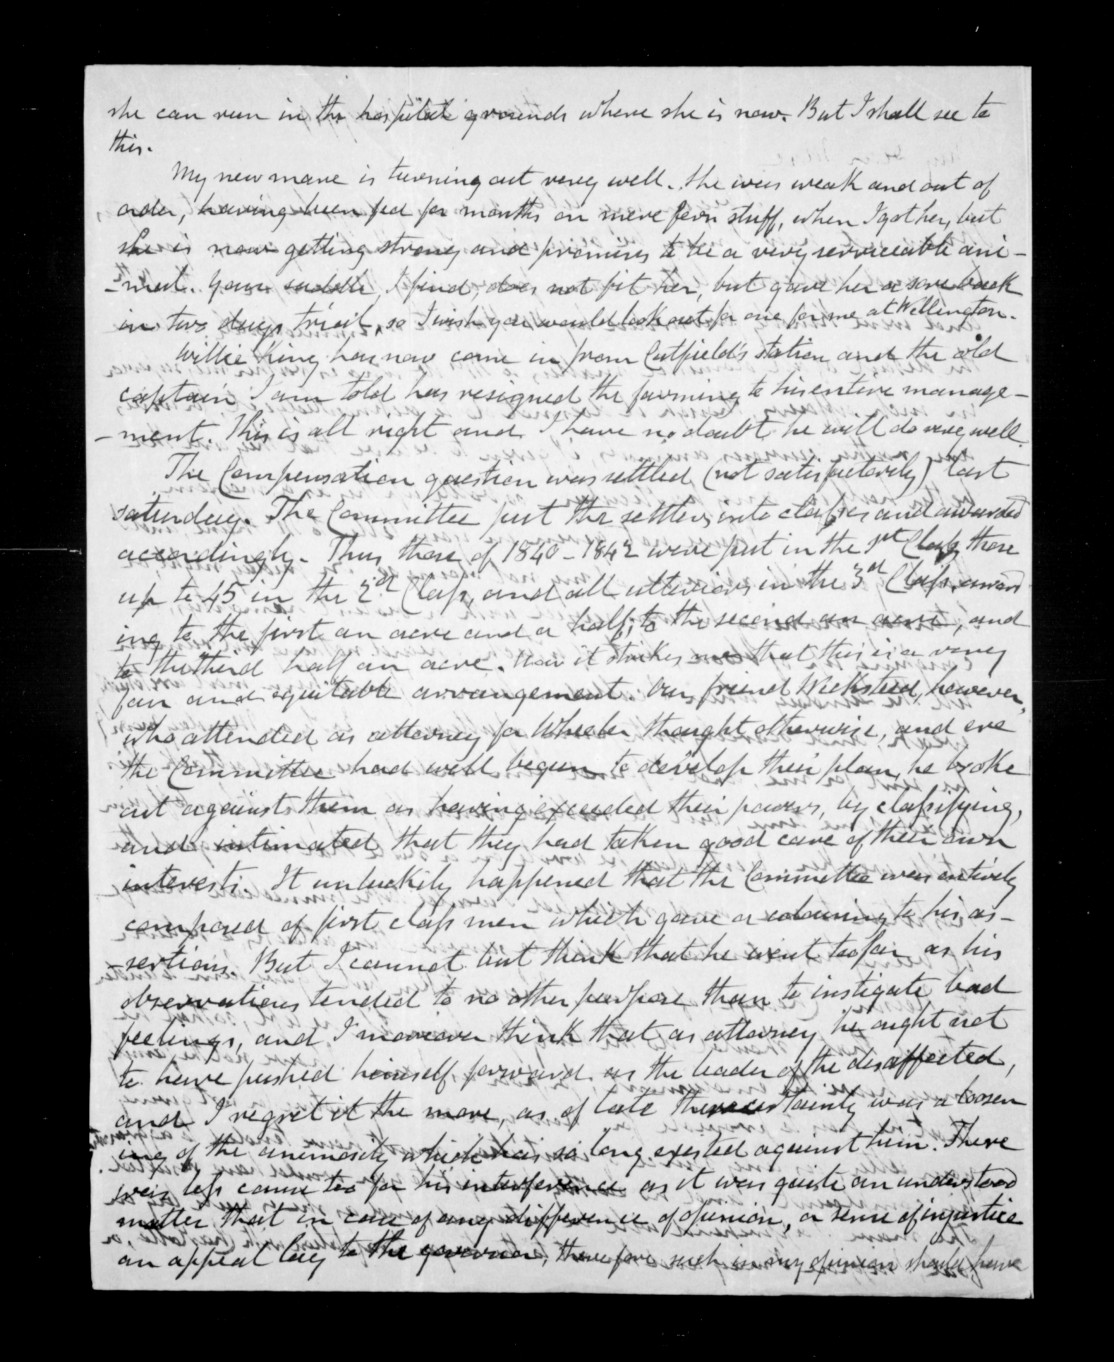 she can run in the hospital grounds where she is now. But I shall see to
this.
My new mare is turning out very well. She was weak and out of
order, having been fed for months on mere fern stuff, when I got her, but
she is now getting strong and promises to be a very serviceable ani-
-mal. Your saddle, I find, does not fit her, but gave her a sore back
in two days trial, so I wish you would look out for one for me at Wellington.
Willie King has now come in from Cutfield's station and the old
captain I am told has resigned the farming to his entire manage-
-ment. This is all right and I have no doubt he will do very well.
The Compensation question was settled (not satisfactorily) last
saturday. The Committee put the settlers into classes and awarded
accordingly. Thus those of 1840-1842 were put in the 1st Class, those
up to 45 in the 2nd Class, and all ulteriors in the 3rd Class award
ing to the first an acre and a half, to the second an acre, and
to the third half an acre. Now it strikes me that this is a very
fair and equitable arrangement. Our friend Wicksteed, however,
who attended as attorney for Wheeler thought otherwise, and ere
the Committee had well begun to develop their plan, he broke
out against them as having exceeded their powers, by classifying,
and intimated that they had taken good care of their own
interests. It unluckily happened that the Committee was entirely
composed of first class men which gave a colouring to his as-
-sertions. But I cannot but think that he went too far as his
observations tended to no other purpose than to instigate bad
feelings, and I moreover think that as attorney he ought not
to have pushed himself forward as the leader of the disaffected,
and I regret it the more, as of late there certainly was a loosen
ing of the animosity which has so long existed against him. There
was less cause too for his interference as it was quite an understood
matter that in case of any difference of opinion, or sense of injustice
an appeal lay to the governor, therefore such in my opinion should have